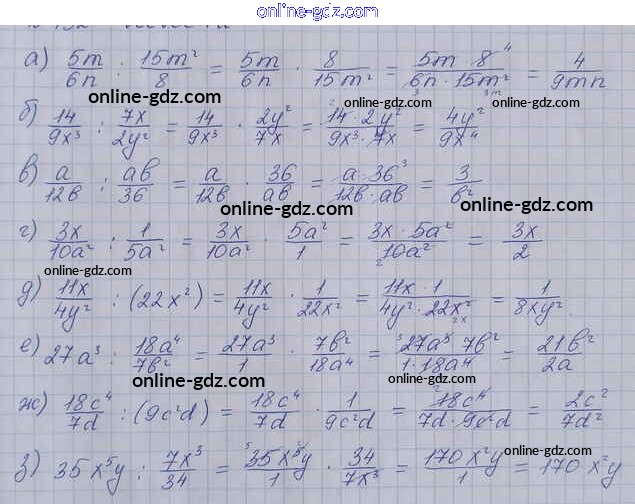 online-gdz.com
а) 5m/6n : 15m²/8 = 5m/6n · 8/15m² = 5m · 8/6n · 15m² = 4/9mn
online-gdz.com online-gdz.com online-gdz.com
б) 14/9x³ : 7x/2y² = 14/9x³ · 2y²/7x = 14 · 2y²/9x³ · 7x = 4y²/9x⁴
online-gdz.com
в) a/12b : ab/36 = a/12b · 36/ab = a · 36/12b · ab = 3/b²
online-gdz.com online-gdz.com
г) 3x/10a² : 1/5a² = 3x/10a² · 5a²/1 = 3x · 5a²/10a² = 3x/2
online-gdz.com online-gdz.com
д) 11x/4y² : (22x²) = 11x/4y² · 1/22x² = 11x · 1/4y² · 22x² = 1/8xy²
online-gdz.com
е) 27a³ : 18a⁴/7b² = 27a³/1 · 7b²/18a⁴ = 27a³ 7b²/1 · 18a⁴ = 21b²/2a
online-gdz.com online-gdz.com
ж) 18c⁴/7d : (9c²d) = 18c⁴/7d · 1/9c²d = 18c⁴/7d · 9c²d = 2c²/7d²
online-gdz.com online-gdz.com
з) 35x⁵y : 7x³/34 = 35x⁵y/1 · 34/7x³ = 170x²y/1 = 170x²y
online-gdz.com